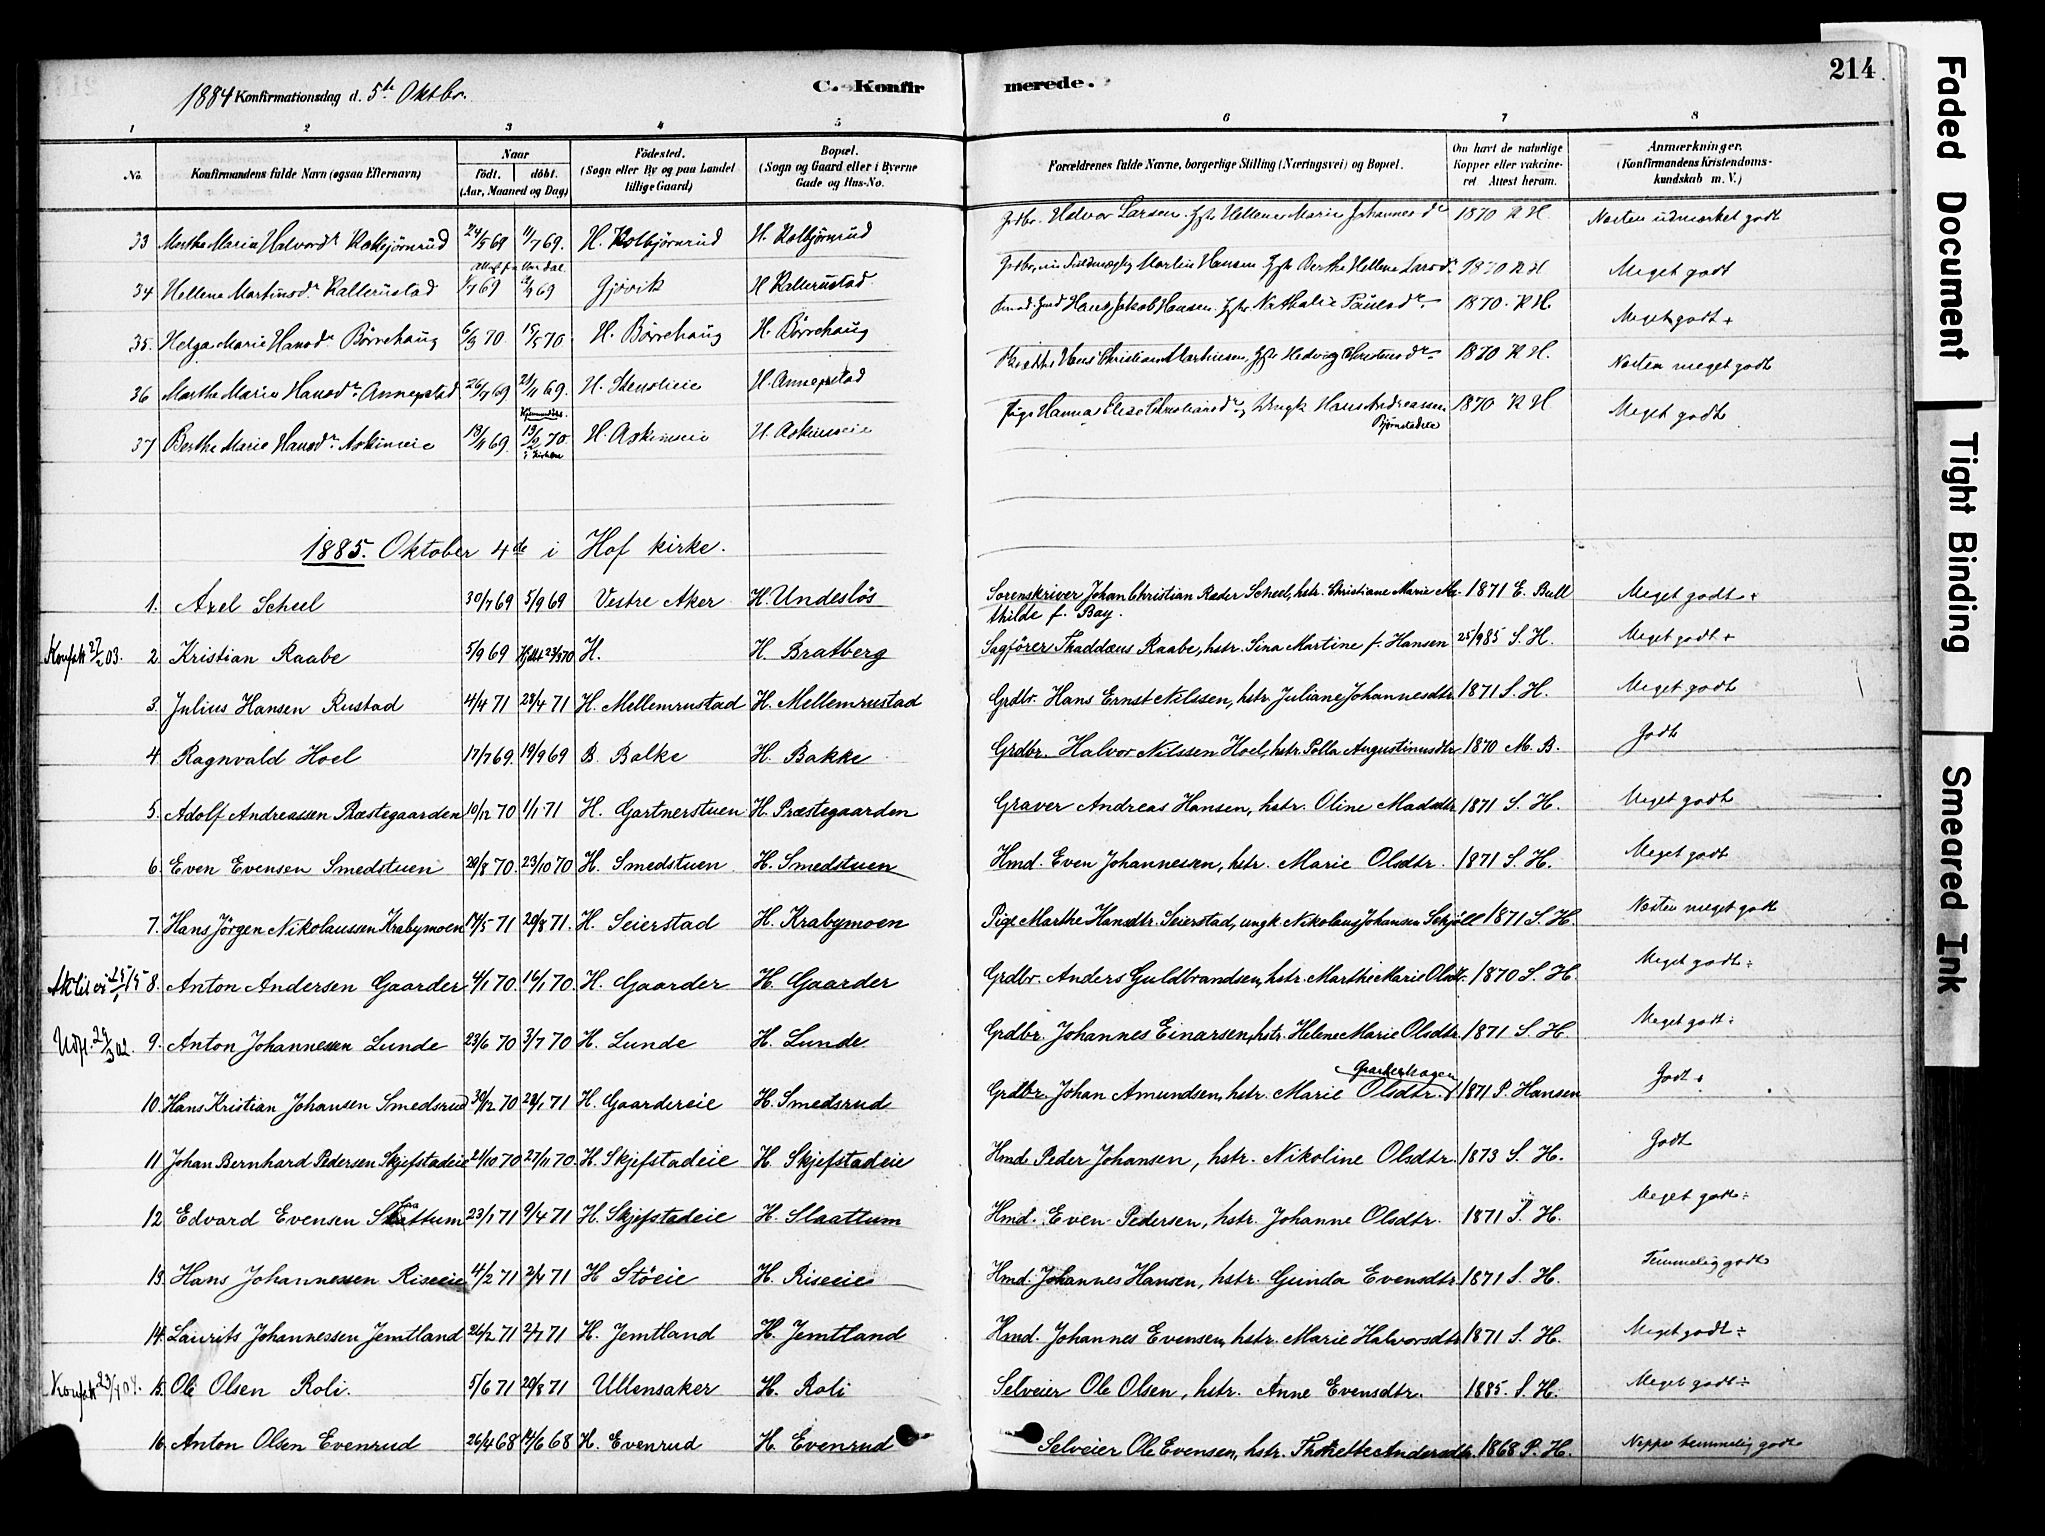 214
1884 Konfirmationsdag d. 5te Oktbr.
C. Konfir merede.
1 2 3 4 5 6 7 8
No. Konfirmandens fulde Navn (ogsaa Efternavn) Naar født. døbt. (Aar, Maaned og Dag) Fødested. (Sogn eller By og paa Landet tillige Gaard) Bopæl. (Sogn og Gaard eller i Byerne Gade og Hus-No. Forældrenes fulde Navne, borgerlige Stilling (Næringsvei) og Bopæl. Om havt de naturlige Kopper eller vakcineret Attest herom. Anmærkninger. (Konfirmandens Kristendomskundskab m. V.)
33 Marthe Marie Halvordr. Kolbjørnrud 24/5 69 11/7 69. H. Kolbjørnrud H. Kolbjørnrud Grdbr. Halvor Larsen Hellene Marie Johannesdr 1870 N H. Næsten udmærket godt
34 Hellene Martinsdr. Kallerustad 1/7 69 69 Gjøvik H Kallerustad Martin Hansen Berthe Hellene Larsdr. 1870 N H. Meget godt
35. Helga Marie Hansdr. Børrehaug 6/3 70. 15/5 70 H. Børrehaug H. Børrehaug Hans Jakob Hansen Nathalie Paulsdr. 1870. N H. Meget godt +
36 Marthe Marie Hansdr. Annexstad 26/7 69 21/11 69. H. Stenslieie H. Annexstad Hans Christian Martinsen, Hedvig Christensdr. 1870 N H. Næsten meget godt
37 Berthe Marie Hansdr. Askimeie 18/11 69. 13/2 70. i Kirken H. Askimeie H. Askimeie Pige Hanna Elise Christiansdr. og Ungk. Hans Andreassen Bjørnstadeie 1870 N H Meget godt
1885. Oktober 4de i Hof kirke.
1. Axel Scheel 30/7 69 5/9 69 Vestre Aker H. Undesløs Sorenskriver Johan Christian Ræder Scheel, hstr. Christiane Marie Mathilde f. Bay. 1871 E. Bull Meget godt +
2. Kristian Raabe 5/9 69 Hjdt 23/5 70 H. H. Bratberg Sagfører Thaddæus Raabe, hstr. Sina Martine f. Hansen 25/9 85 S. H. Meget godt +
3. Julius Hansen Rustad 4/4 71 23/4 71 H. Mellemrustad H. Mellemrustad Grdbr. Hans Ernst Nilssen, hstr. Juliane Johannesdtr. 1871 S. H. Meget godt
4 Ragnvald Hoel 17/7 69. 19/9 69 B. Balke H. Bakke Grdbr. Halvor Nilssen Hoel, hstr. Polla Augustinusdtr 1870 M. B. Godt
5. Adolf Andreassen Præstegaarden 10/12 70 1/1 71 H. Gartnerstuen H. Præstegaarden Graver Andreas Hansen, hstr. Oline Madsdtr 1871 S. H. Meget godt
6. Even Evensen Smedstuen 29/8 70. 23/10 70 H. Smedstuen H. Smedstuen Hmd. Even Johannessen, hstr. Marie Olsdtr. 1871 S. H. Meget godt
7. Hans Jörgen Nikolaussen Krabymoen 17/5 71 20/8 71. H. Seierstad H. Krabymoen Pige Marthe Hansdtr. Seierstad, ungk. Nikolaus Johansen Schjöll 1871 S. H. Næsten meget godt
8. Anton Andersen Gaarder 4/1 70 16/1 70. H. Gaarder H. Gaarder Grdbr. Anders Guldbrandsen, hstr. Marthe Marie Olsdtr. 1870 S. H. Meget godt ÷
9. Anton Johannessen Lunde 23/6 70 3/7 70 H. Lunde H. Lunde Grdbr. Johannes Einarsen, hstr. Helene Marie Olsdtr. 1871 S. H. Meget godt ÷
10. Hans Kristian Johansen Smedsrud 30/12 70 29/1 71 H. Gaardereie H. Smedsrud Grdbr. Johan Amundsen, hstr. Marie Olsdtr. Gaarderhagen 1871 P. Hansen Godt +
11 Johan Bernhard Pedersen Skjefstadeie 21/10 70 27/11 70. H. Skjefstadeie H. Skjefstadeie Hmd. Peder Johansen, hstr. Nikoline Olsdtr. 1873 S. H. Godt
12 Edvard Evensen Slaattum 23/1 71 9/4 71 H. Skjefstadeie H. Slaattum Hmd. Even Pedersen, hstr. Johanne Olsdtr. 1871 S. H. Meget godt ÷
13. Hans Johannessen Riseeie 4/2 71 2/4 71 H Stöeie H. Riseeie Hmd. Johannes Hansen, hstr. Gunda Evensdtr. 1871 S. H. Temmelig godt
14. Laurits Johannessen Jemtland 26/2 71 2/7 71 H. Jemtland H. Jemtland Hmd. Johannes Evensen, hstr. Marie Halvorsdtr. 1871 S. H. Meget godt ÷
15. Ole Olsen Roli. 5/6 71 20/8 71 Ullensaker H. Roli Selveier Ole Olsen, hstr. Anne Evensdtr. 1885. S. H. Meget godt ÷
16. Anton Olsen Evenrud 26/4 68 14/6 68 H. Evenrud H. Evenrud Selveier Ole Evensen, hstr. Thorette Andersdtr. 1868 P. H. Neppe temmelig godt
Faded Document
Tight Binding
Smeared Ink